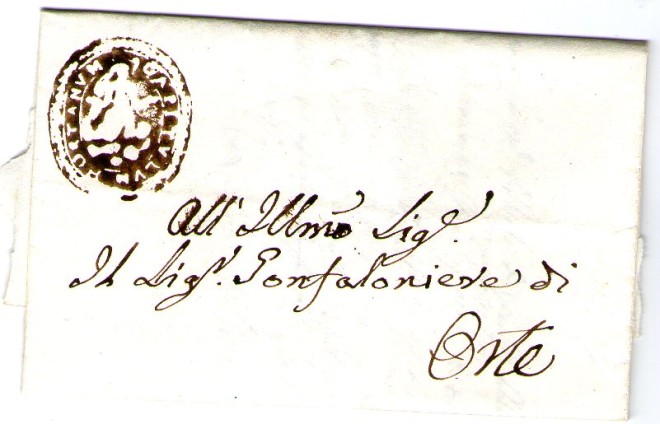 All' Illmo Sigr.
Il Sigr. Gonfaloniere di
Orte